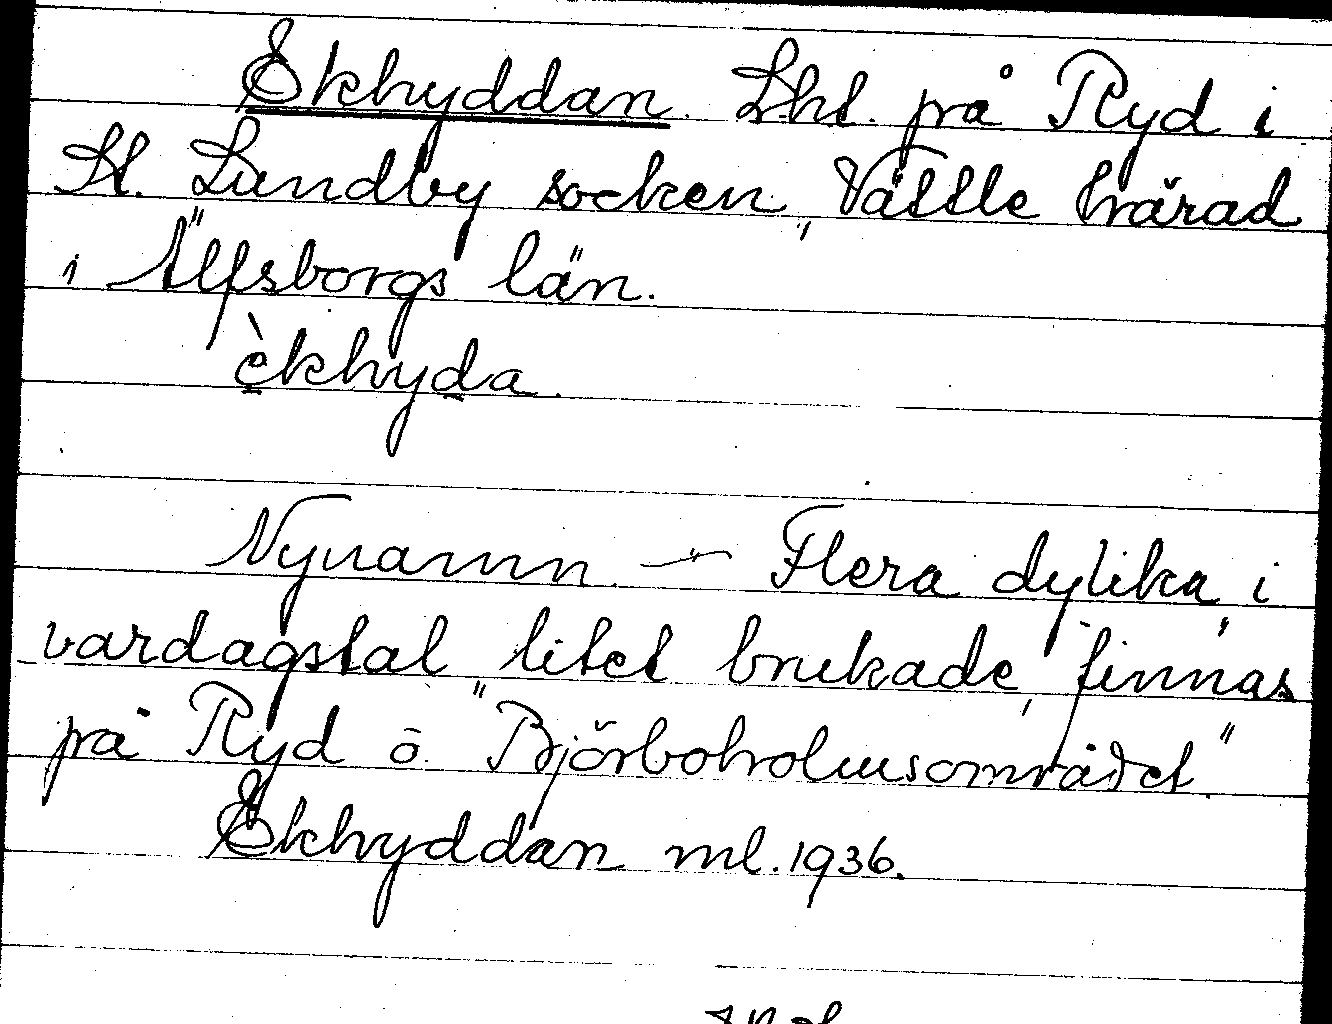 Ekhyddan. Lht. på Ryd i
St. Lundby socken, Vättle härad
i Älfsborgs län.
èkhyda.
Nynamn. — Flera dylika, i
vardagstal litet brukade, finnas
på Ryd o. "Björboholmsområdet."
Ekhyddan ml. 1936.